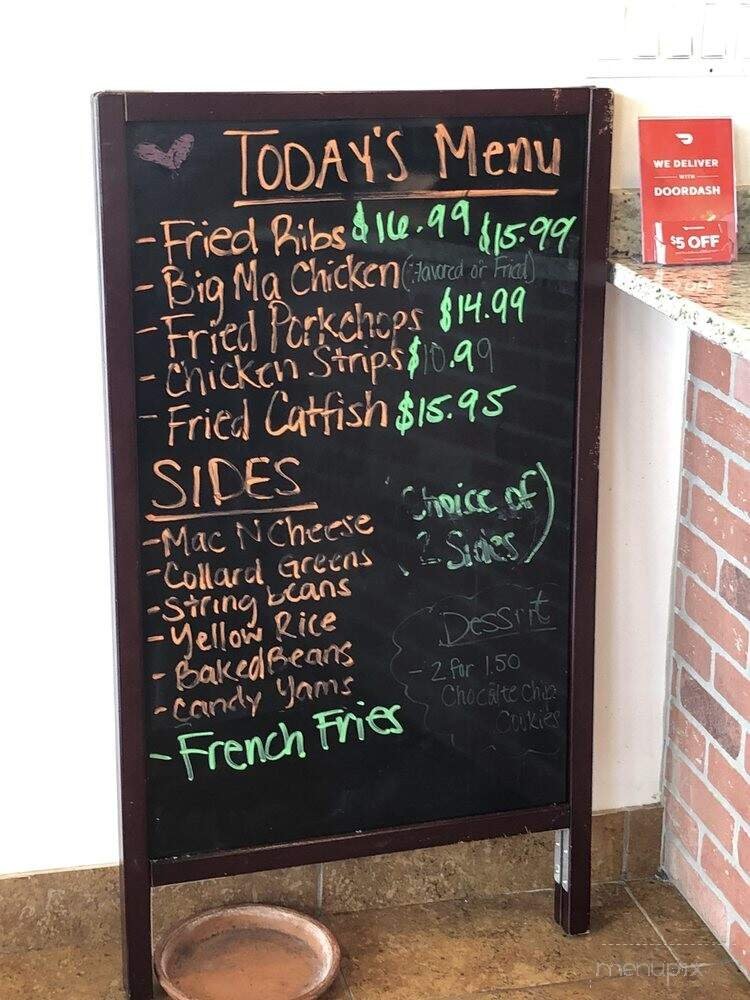 TODAY'S Menu
- Fried Ribs $16.99
- Big Ma Chicken (Flavored or Fried) $15.99
- Fried Porkchops $14.99
- Chicken Strips $10.99
- Fried Catfish $15.95
SIDES
- Mac N Cheese
- Collard Greens
- String beans
- Yellow Rice
- Baked Beans
- Candy Yams
- French Fries
Choice of
2 Sides)
Dessrt
- 2 for 1.50
Chocolte Chip
Cookies
WE DELIVER
WITH
DOORDASH
$5 OFF
menupix